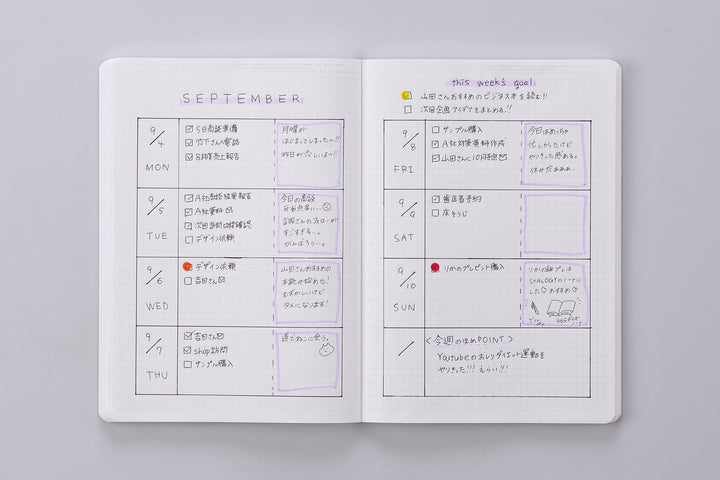 SEPTEMBER
9/4
MON
5日商談準備
竹下さんへ電話
8月度売上報告
月曜が
はじまってしまったー!!
昨日が恋しいよー!!
9/5
TUE
A社商談結果報告
A社資料
次回訪問日程確認
デザイン依頼
今日の商談
吉岡さんのフォローが
すごすぎる…。
がんばろうー。
9/6
WED
デザイン依頼
吉田さん
山田さんおすすめの
本読み始めた!
むずかしいけど
タメになります!
9/7
THU
吉田さん
shop訪問
サンプル購入
道でねこに会う。
this week's goal
山田さんおすすめのビジネス本を読む!!
次回企画アイデアをまとめる!!
9/8
FRI
サンプル購入
A社対策資料作成
山田さんに10月担当
今日はめっちゃ
忙しかったけど
やりきった感ある。
休みだぁぁぁ
9/9
SAT
歯医者予約
床そうじ
9/10
SUN
りかのプレゼント購入
りかの誕プレは
STALOGYのノートに
した おすすめ
365デイズ
ノート
/
<今週のほめPOINT>
Youtubeのおしりダイエット運動を
やりきった!!! えらい!!!